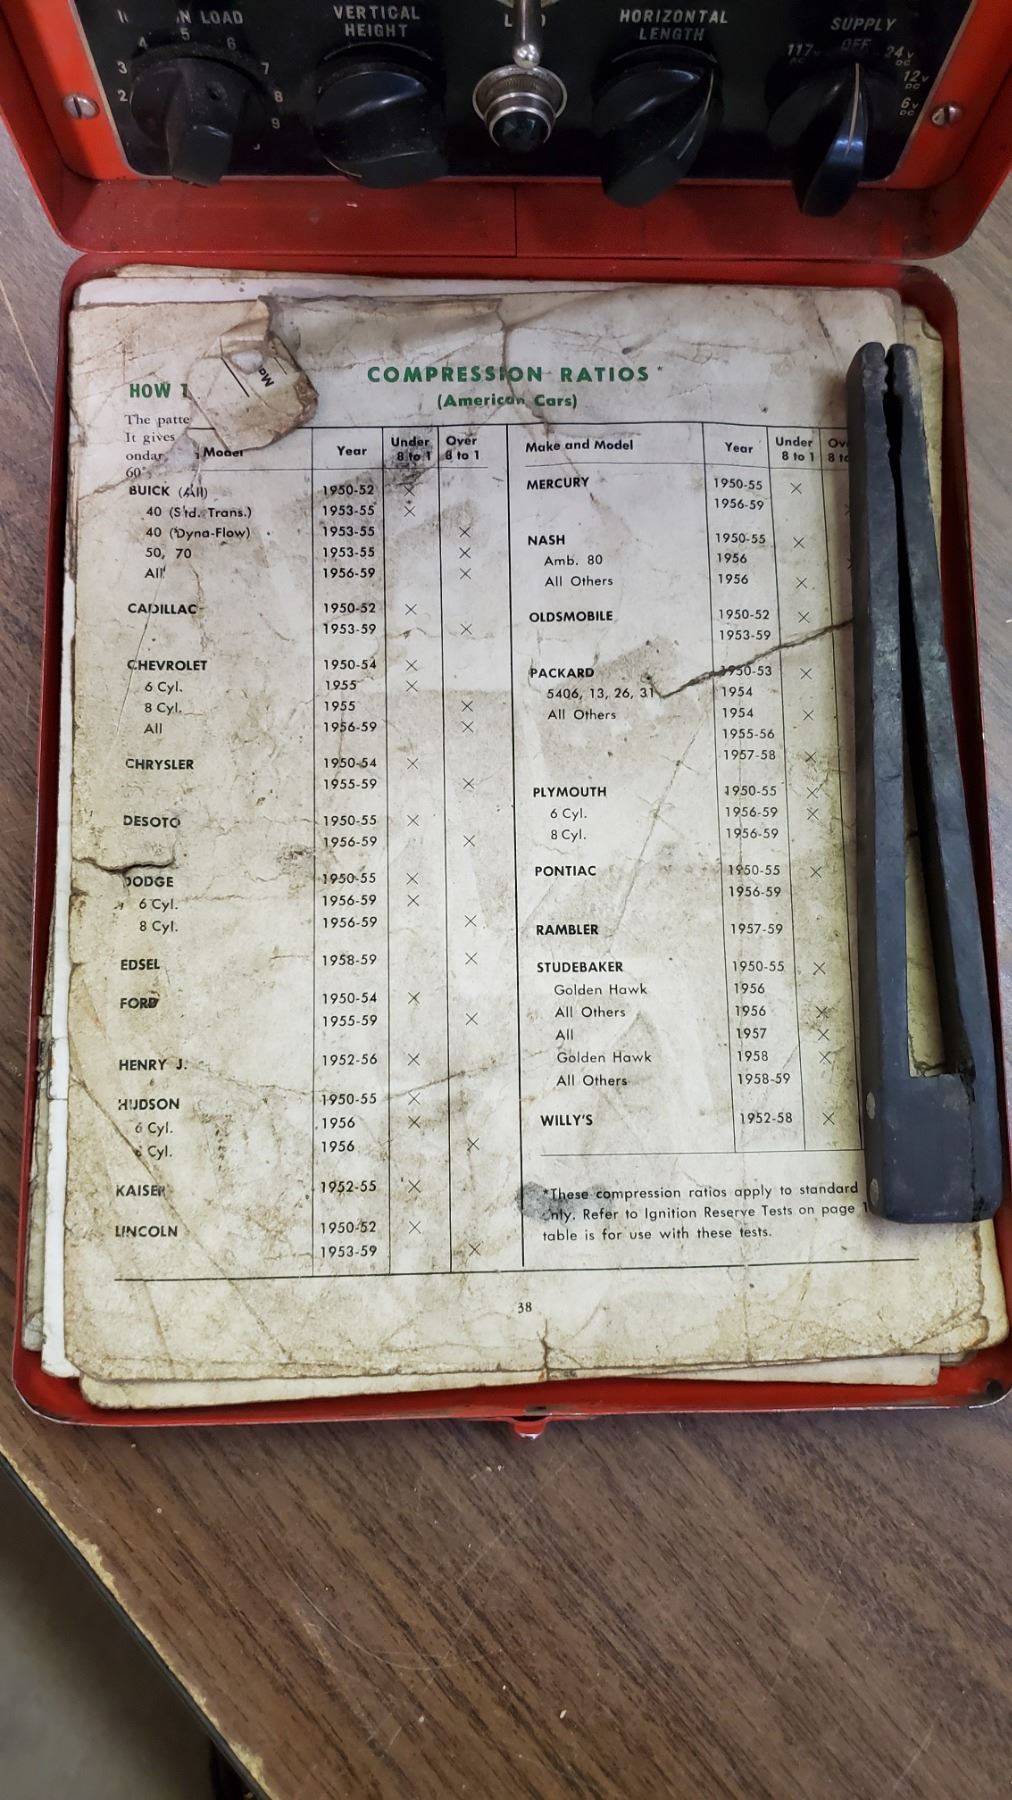 N LOAD
VERTICAL
HEIGHT
HORIZONTAL
LENGTH
SUPPLY
OFF
117
24V
DC
12V
DC
6V
DC
2 3 4 5 6 7 8 9
HOW
The patte
It gives
ondar
60°
COMPRESSION RATIOS *
(American Cars)
Model Year Under 8 to 1 Over 8 to 1
BUICK (All) 1950-52 X
40 (Std. Trans.) 1953-55 X
40 (Dyna-Flow) 1953-55 X
50, 70 1953-55 X
All 1956-59 X
CADILLAC 1950-52 X
1953-59 X
CHEVROLET 1950-54 X
6 Cyl. 1955 X
8 Cyl. 1955 X
All 1956-59 X
CHRYSLER 1950-54 X
1955-59 X
DESOTO 1950-55 X
1956-59 X
DODGE 1950-55 X
6 Cyl. 1956-59 X
8 Cyl. 1956-59 X
EDSEL 1958-59 X
FORD 1950-54 X
1955-59 X
HENRY J. 1952-56 X
HUDSON 1950-55 X
6 Cyl. 1956 X
Cyl. 1956 X
KAISER 1952-55 X
LINCOLN 1950-52 X
1953-59 X
Make and Model Year Under 8 to 1
MERCURY 1950-55 X
1956-59
NASH 1950-55 X
Amb. 80 1956
All Others 1956 X
OLDSMOBILE 1950-52 X
1953-59
PACKARD 1950-53 X
5406, 13, 26, 31 1954
All Others 1954 X
1955-56
1957-58 X
PLYMOUTH 1950-55 X
6 Cyl. 1956-59 X
8 Cyl. 1956-59
PONTIAC 1950-55 X
1956-59
RAMBLER 1957-59
STUDEBAKER 1950-55 X
Golden Hawk 1956
All Others 1956 X
All 1957 X
Golden Hawk 1958 X
All Others 1958-59
WILLY'S 1952-58 X
*These compression ratios apply to standard
only. Refer to Ignition Reserve Tests on page
table is for use with these tests.
38